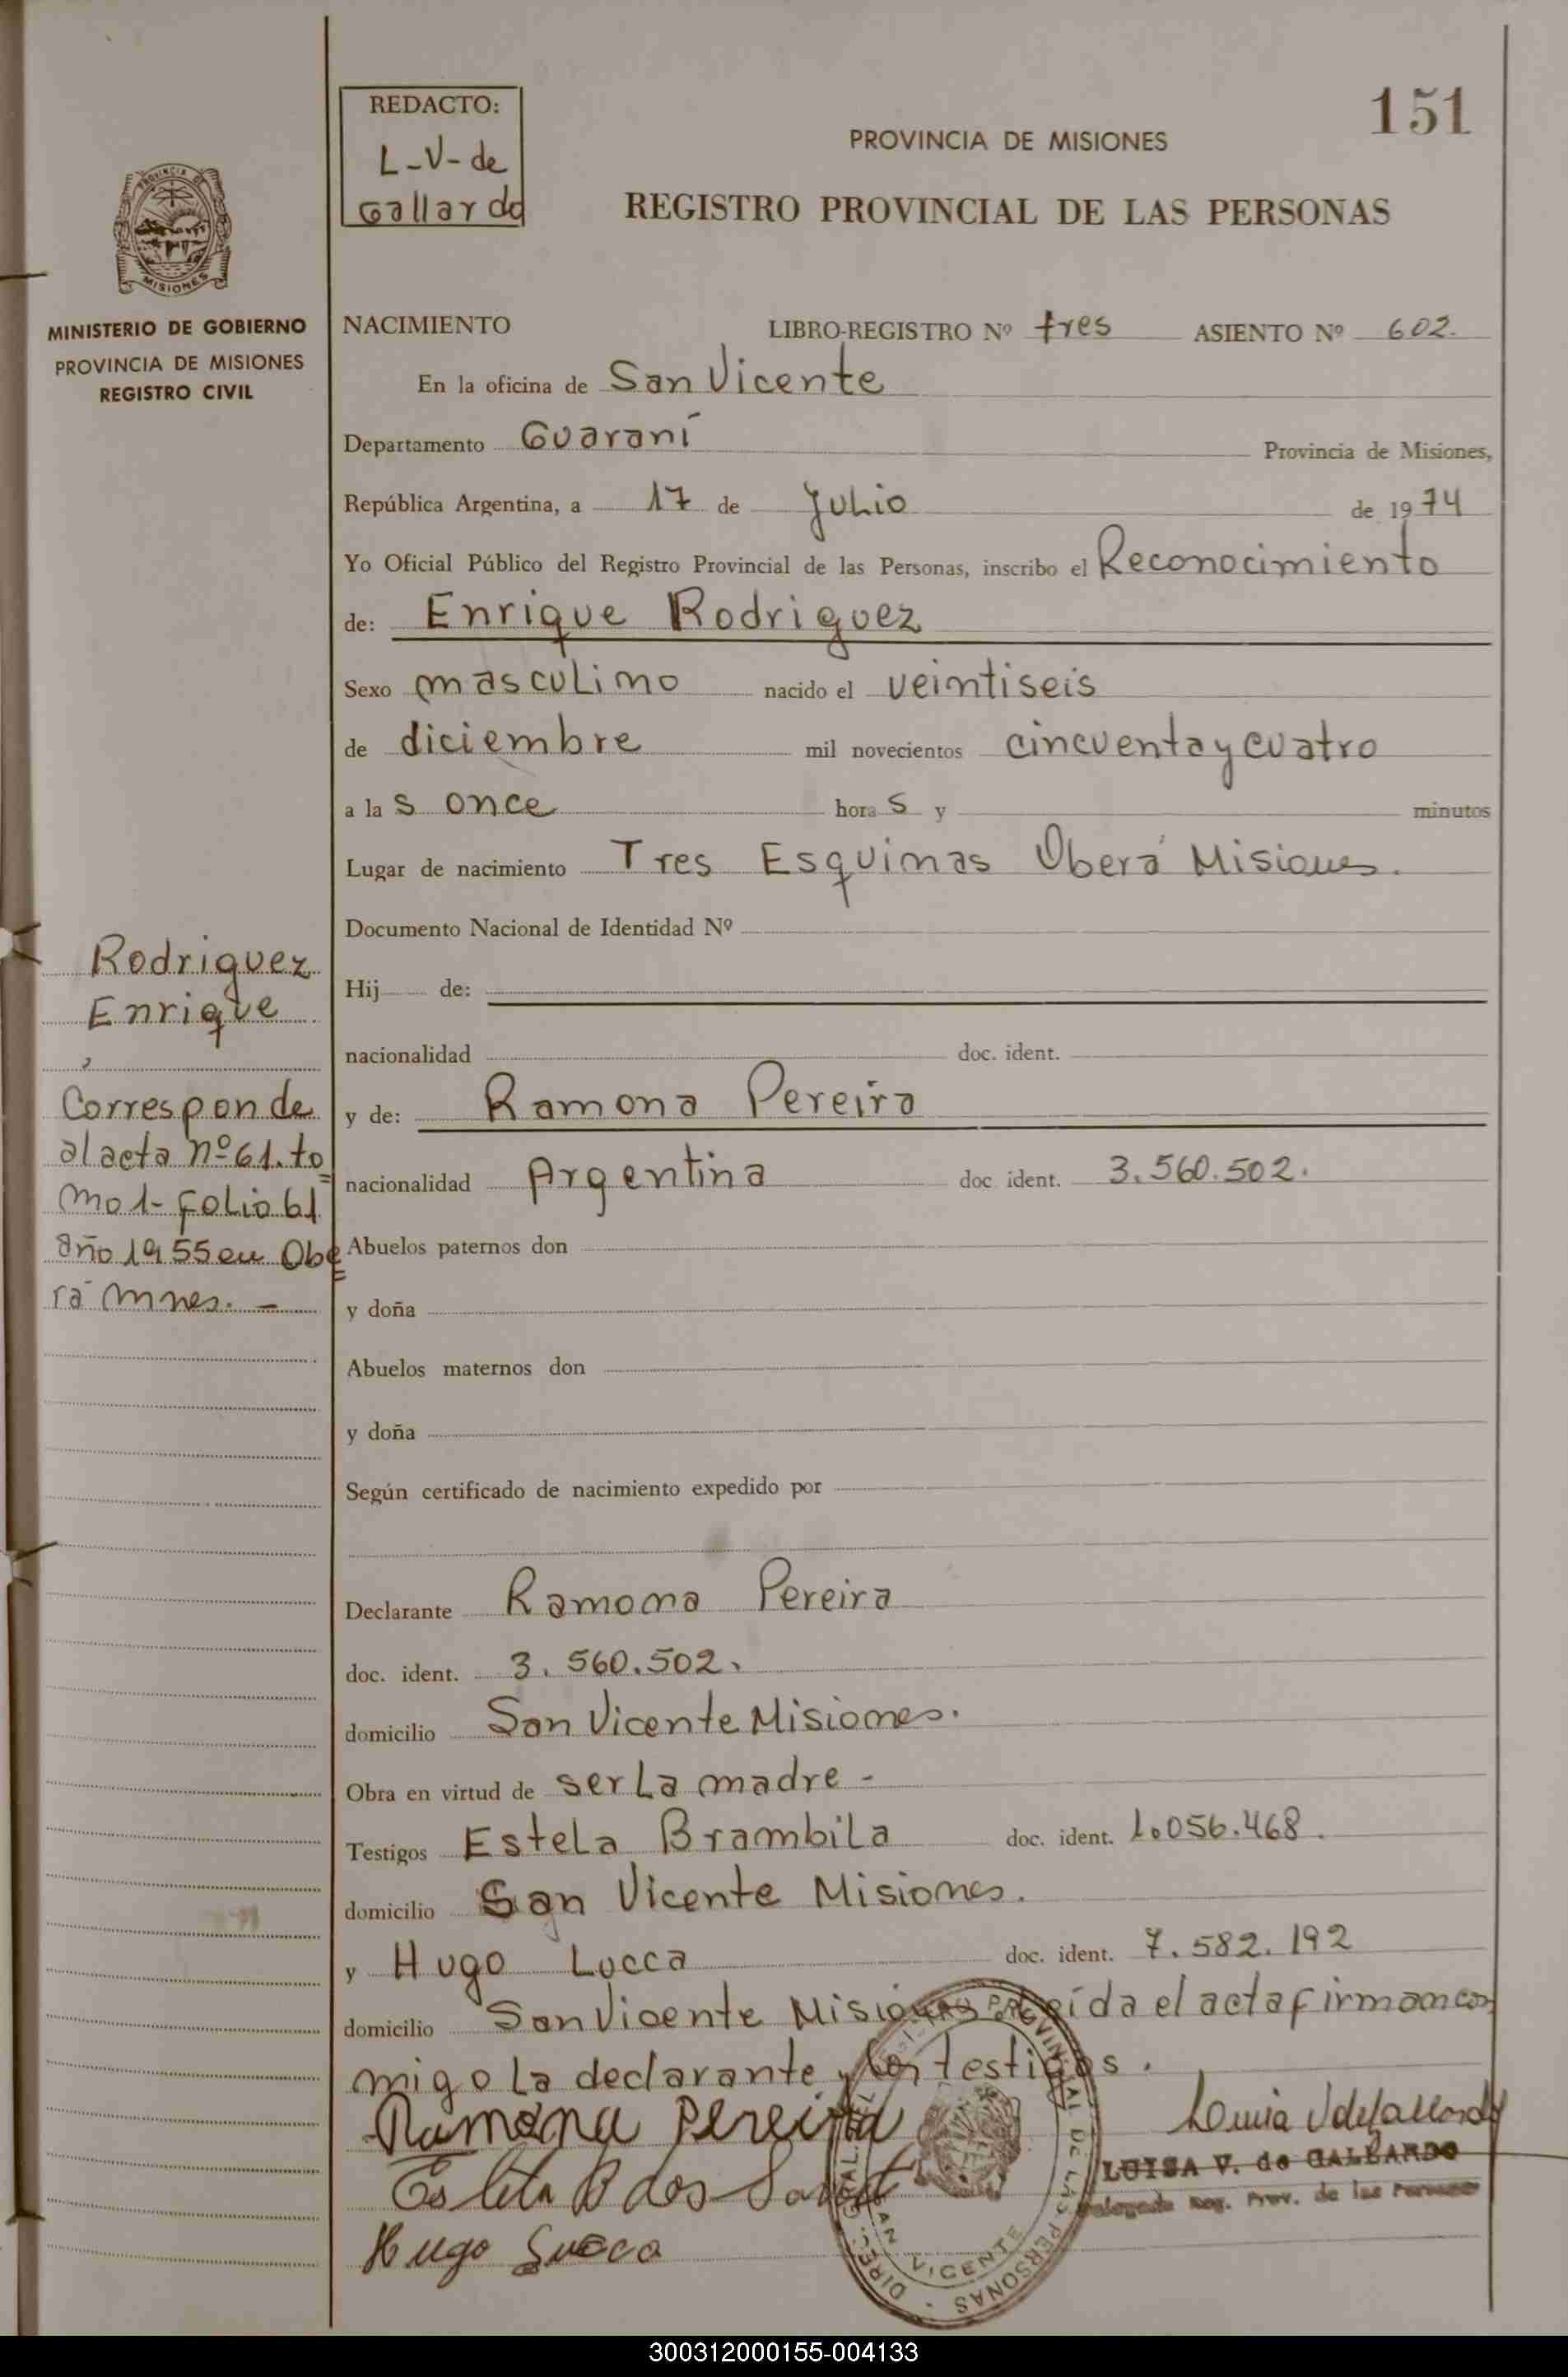 151
REDACTO:
L-V-de
Gallardo
PROVINCIA DE MISIONES
REGISTRO PROVINCIAL DE LAS PERSONAS
MISIONES
MINISTERIO DE GOBIERNO
PROVINCIA DE MISIONES
REGISTRO CIVIL
NACIMIENTO LIBRO-REGISTRO Nº tres ASIENTO Nº 602.
En la oficina de San Vicente
Departamento Guaraní Provincia de Misiones,
República Argentina, a 17 de Julio de 1974
Yo Oficial Público del Registro Provincial de las Personas, inscribo el Reconocimiento
de: Enrique Rodriguez
Sexo masculino nacido el veintiseis
de diciembre mil novecientos cincuenta y cuatro
a las once horas y minutos
Lugar de nacimiento Tres Esquinas Oberá Misiones.
Documento Nacional de Identidad Nº
Hij de:
nacionalidad doc. ident.
y de: Ramona Pereira
nacionalidad Argentina doc. ident. 3.560.502.
Abuelos paternos don
y doña
Abuelos maternos don
y doña
Según certificado de nacimiento expedido por
Declarante Ramona Pereira
doc. ident. 3.560.502.
domicilio San Vicente Misiones.
Obra en virtud de ser la madre -
Testigos Estela Brambila doc. ident. 1.056.468.
domicilio San Vicente Misiones.
y Hugo Lucca doc. ident. 7.582.192
domicilio San Vicente Misiones Leída el acta firman con
migo la declarante y los testigos.
Ramona Pereira
Hugo Lucca
LUISA V. de GALLARDO
Delegada Reg. Prov. de las Personas
SAN VICENTE
Rodriguez
Enrique
Corresponde
al acta nº 61. to
mo 1- folio 61
año 1955 en Obe
rá Mnes. -
300312000155-004133